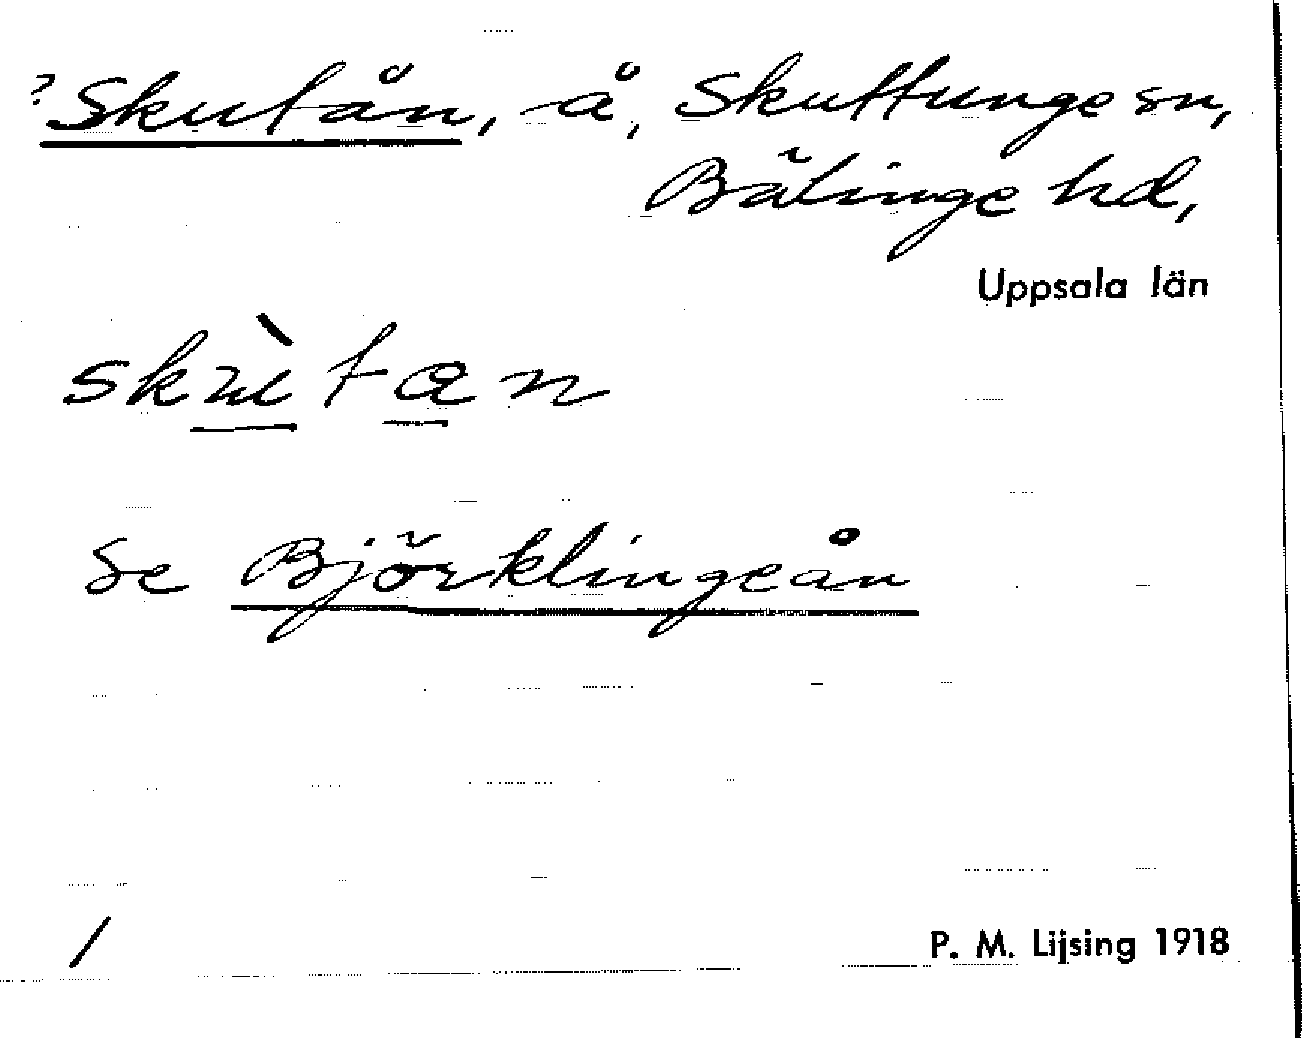 ? Skutån, å, Skuttunge sn,
Bälinge hd,
Uppsala län
skù̱ta̱n
Se Björklingeån
/
P. M. Lijsing 1918